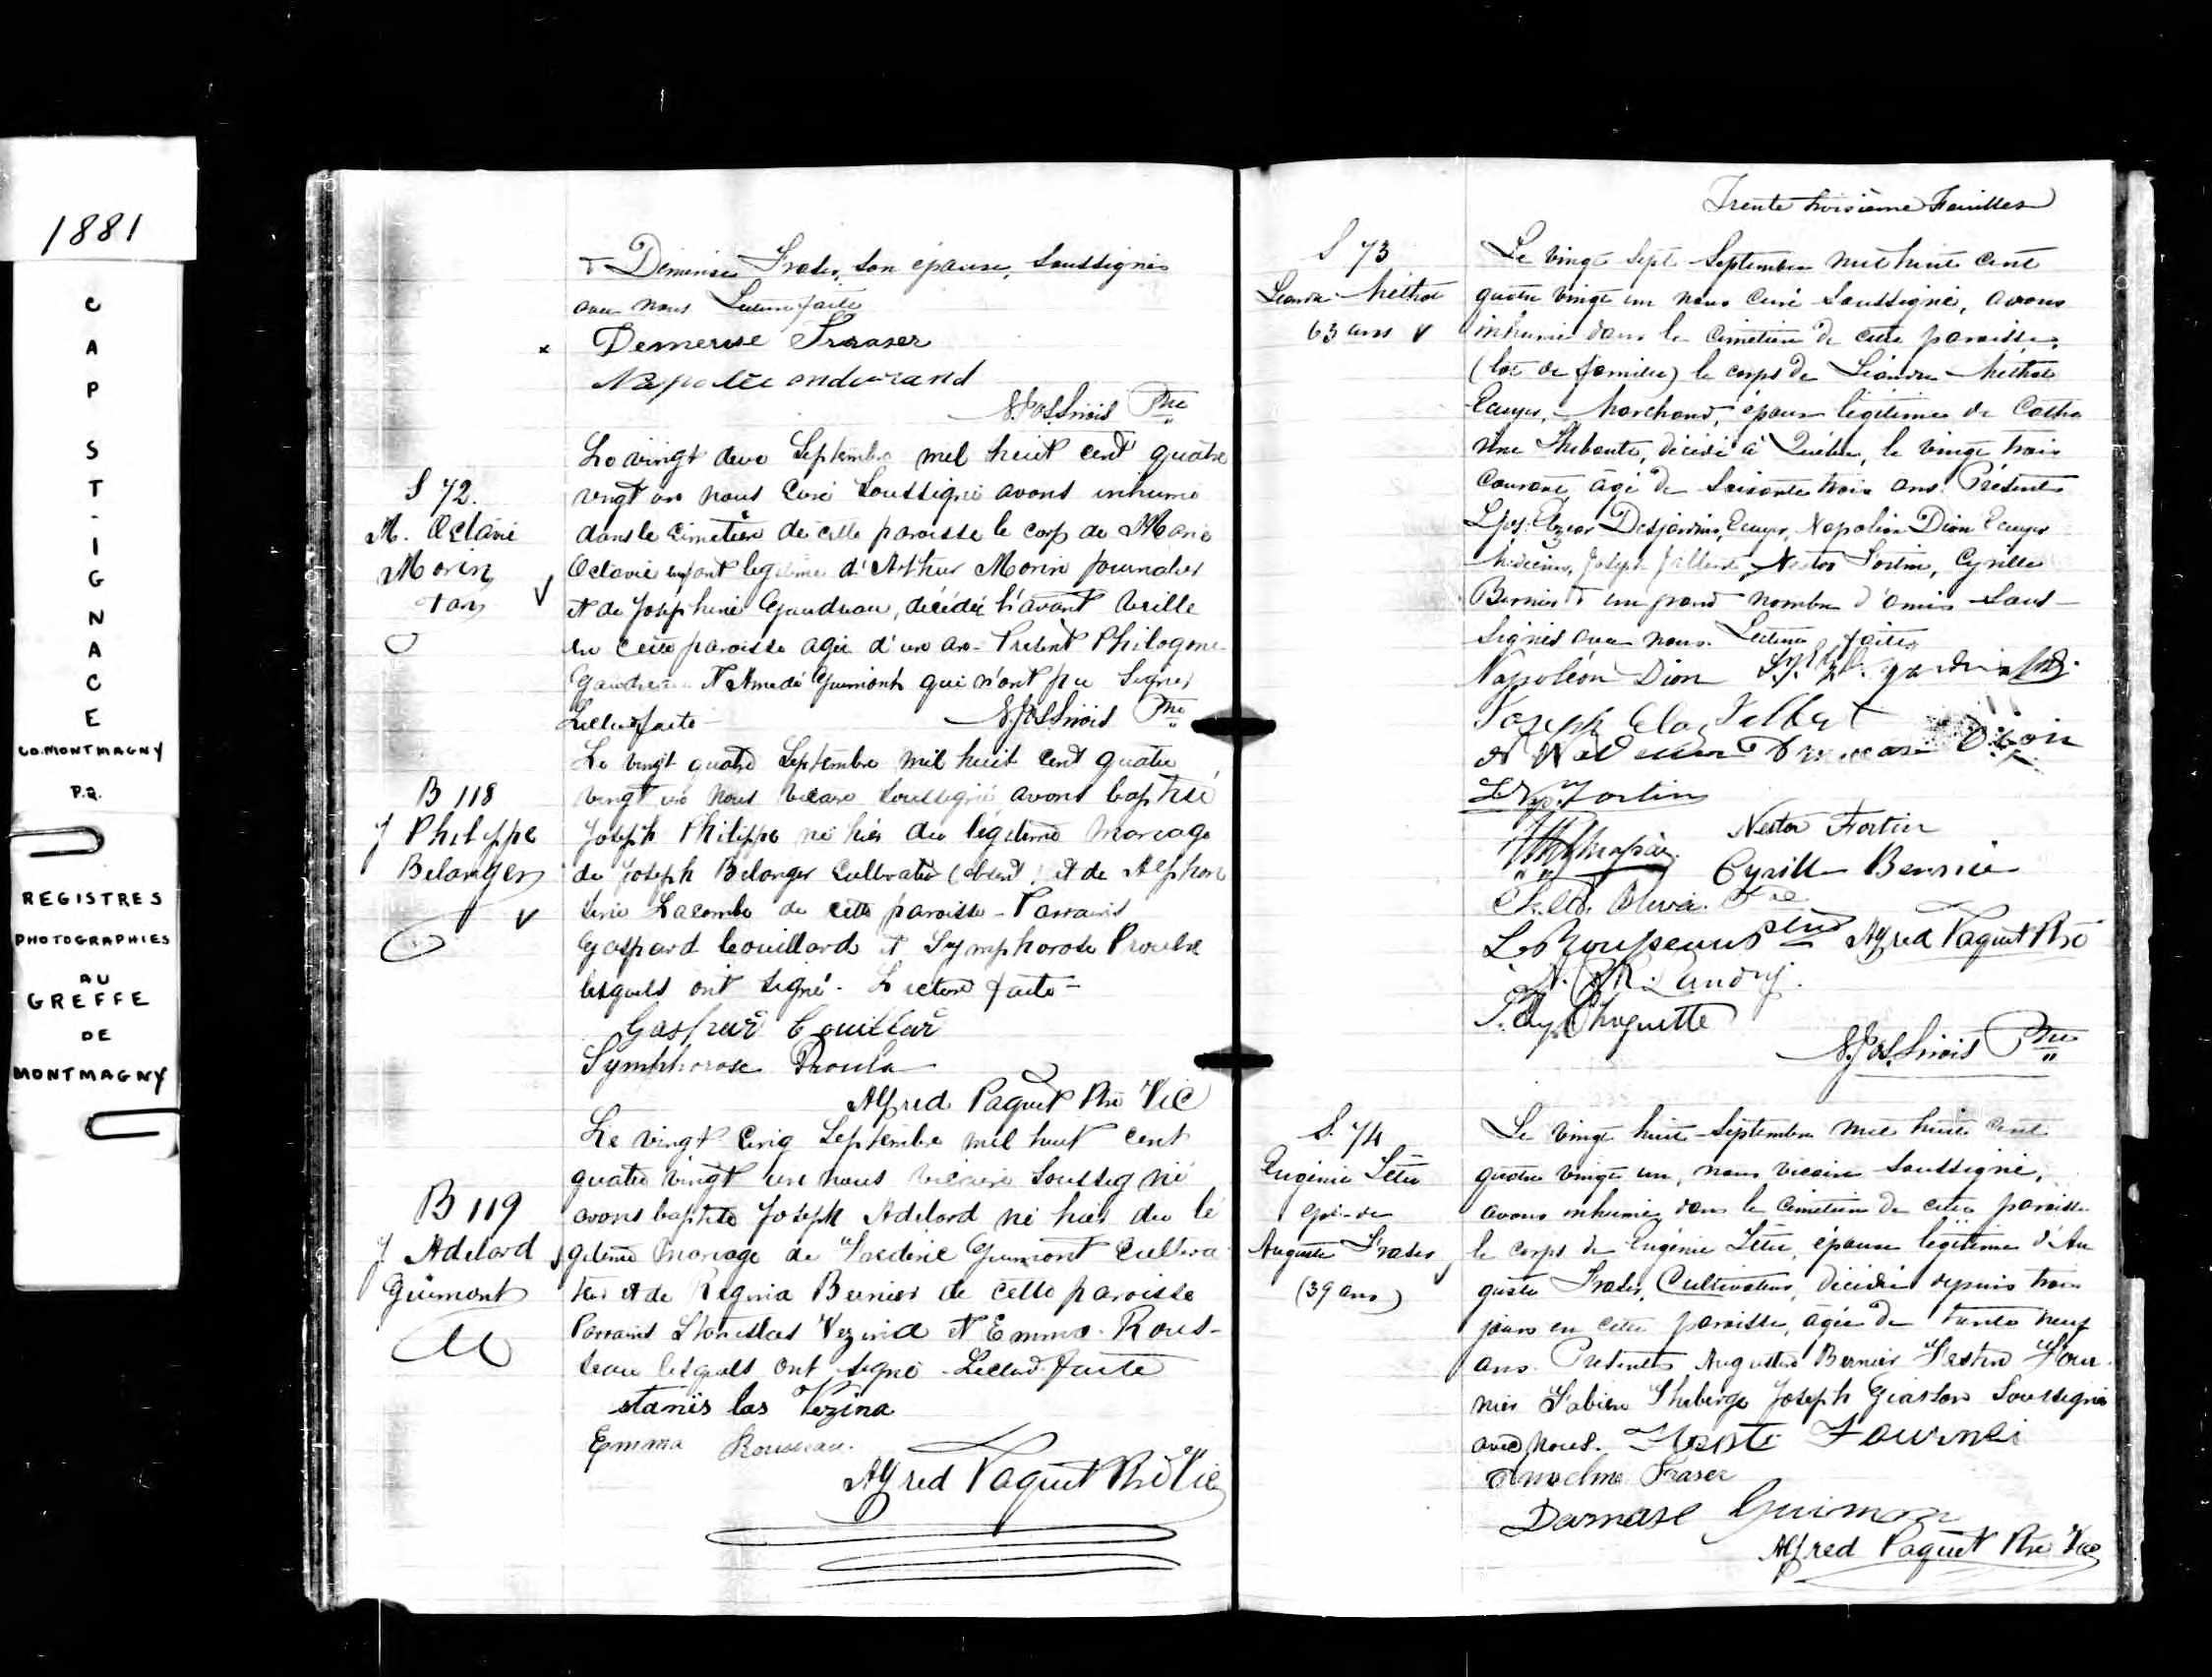 1881
CAP ST-IGNACE
CO. MONTMAGNY
P.Q.
REGISTRES
PHOTOGRAPHIES
AU
GREFFE
DE
MONTMAGNY
& Demerise Fraser, son épouse, soussignés
avec nous Lecture faite
x Demerise Fraser
Napoléon
Ptre
Le vingt deux Septembre mil huit cent quatre
S 72.
vingt un nous Curé Soussigné avons inhumé
M. Octavie
dans le Cimetière de cette paroisse le corp de Marie
Morin
Octavie enfant legitime d'Arthur Morin journalier
1 an
et de Josephine Gaudreau, décédée l'avant veille
en cette paroisse agée d'un an - Présent Philogone
Gaudreau et Amedé Guimont qui n'ont pu signer
Lecture faite -
Ptre
Le vingt quatre Septembre mil huit cent quatre
B 118
vingt un nous vicaire soussigné avons baptisé
J Philippe
Joseph Philippe né hier du légitime mariage
Belanger
de Joseph Belanger Cultivateur (absent) et de Alphon
sine Lacombe de cette paroisse - Parrains
Gaspard Couillard et Symphorose Proulx
lesquels ont signé. Lecture faite -
Gaspard Couillard
Symphorose Proulx
Alfred Paquet Ptre Vic
Le vingt Cinq Septembre mil huit cent
quatre vingt un nous vicaire soussigné
B 119
avons baptisé Joseph Adelard né hier du lé
J. Adelard
gitime mariage de Frederic Guimont Cultiva
Guimont
teur et de Regina Bernier de cette paroisse
Parrains Stanislas Vezina et Emma Rous-
seau lesquels ont signé - Lecture faite
stanis las Vezina
Emma Rousseau.
Alfred Paquet Ptre Vic
Trente troisième Feuilles
S 73
Le vingt sept Septembre mil huit cent
Leandre Méthot
quatre vingt un nous curé Soussigné, avons
63 ans
inhumé dans le cimetière de cette paroisse,
(lot de famille) le corps de Léandre Méthot
Ecuyer, Marchand, époux légitime de Cathe
rine décédé à Québec, le vingt trois
courant, âgé de soixante trois ans. Présents
Desjardins, Ecuyer, Napoléon Dion Ecuyer
Médecin, Joseph Nestor Fortin, Cyrille
Bernier & un grand nombre d'amis sous-
signés avec nous. Lecture faite
Napoléon Dion
Joseph
Dion
Fortin
Nestor Fortin
Cyrille Bernier
Alfred Paquet Ptre
Landry
Choquette
Ptre
S. 74
Le vingt huit Septembre mil huit cent
Eugénie Têtu
quatre vingt un, nous vicaire soussigné,
épse de
avons inhumé dans le cimetière de cette paroisse
Auguste Fraser
le corps de Eugénie Têtu, épouse légitime d'Au
(39 ans)
guste Fraser, Cultivateur, décédée depuis trois
jours en cette paroisse, agée de trente neuf
ans. Présents Augustin Bernier Four
nier Fabien Theberge Joseph Giasson soussignés
avec nous. Fournier
Anselme Fraser
Damase Guimon
Alfred Paquet Ptre Vic